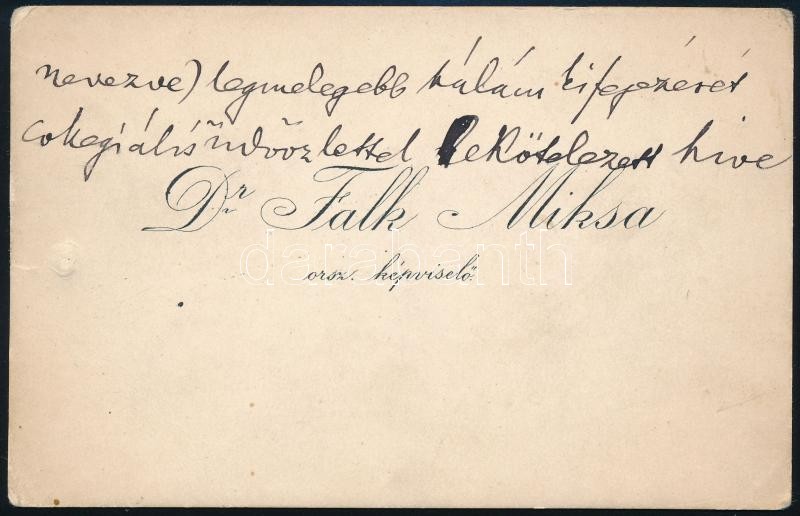 nevezve) legmelegebb hálám kifejezését
collegiális üdvözlettel lekötelezett híve
Dr Falk Miksa
orsz. képviselő.
darabanth